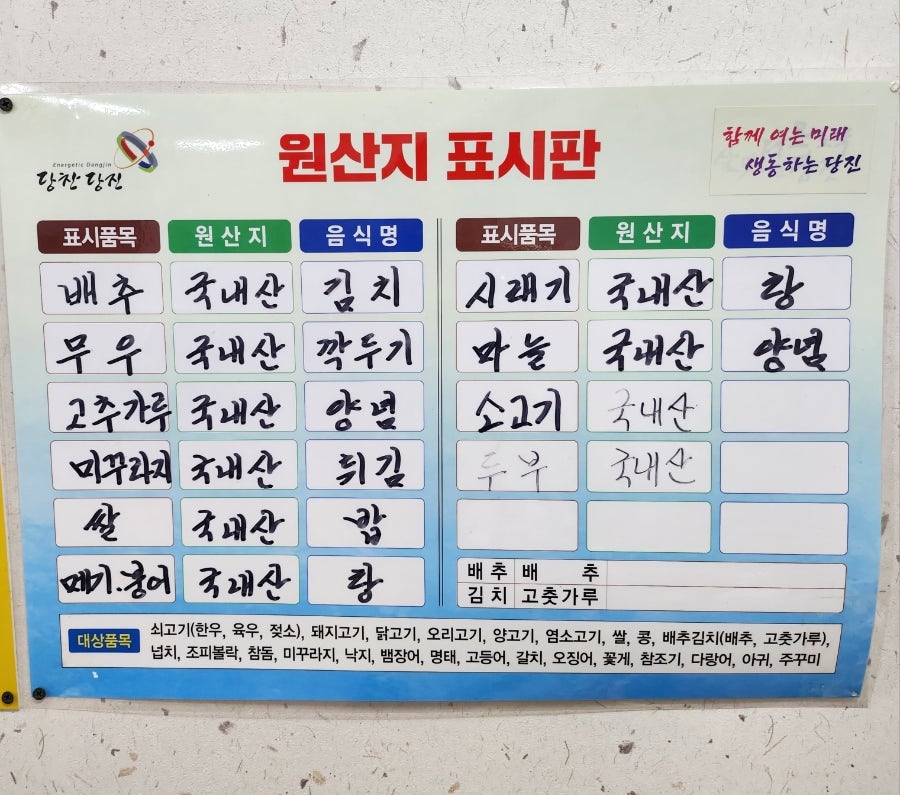 Energetic Dangjin
당찬 당진
원산지 표시판
함께 여는 미래
생동하는 당진
표시품목 원산지 음식명 표시품목 원산지 음식명
배추 국내산 김치 시래기 국내산 탕
무우 국내산 깍두기 마늘 국내산 양념
고추가루 국내산 양념 소고기 국내산
미꾸라지 국내산 튀김 두부 국내산
쌀 국내산 밥
메기.붕어 국내산 탕 배추 배추
김치 고춧가루
대상품목 쇠고기(한우, 육우, 젖소), 돼지고기, 닭고기, 오리고기, 양고기, 염소고기, 쌀, 콩, 배추김치(배추, 고춧가루),
넙치, 조피볼락, 참돔, 미꾸라지, 낙지, 뱀장어, 명태, 고등어, 갈치, 오징어, 꽃게, 참조기, 다랑어, 아귀, 주꾸미